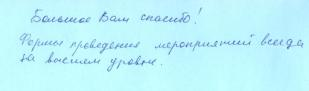 Большое Вам спасибо!
Формы проведения мероприятий всегда
на высшем уровне.